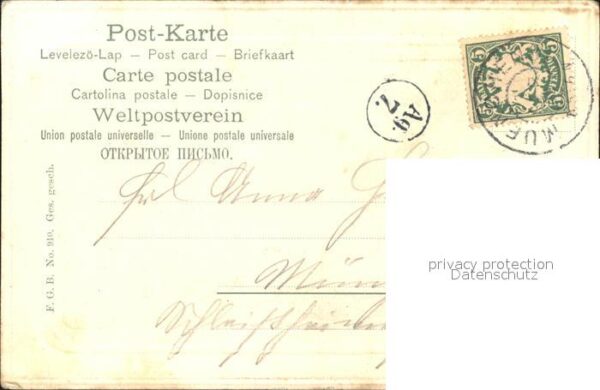 Post-Karte
Levelezö-Lap — Post card — Briefkaart
Carte postale
Cartolina postale — Dopisnice
Weltpostverein
Union postale universelle — Unione postale universale
ОТКРЫТОЕ ПИСЬМО.
5 5
5 5
MUE
Ag.
7.
Frl Anna
Mün
F. G. B. No. 910. Ges. gesch.
privacy protection
Datenschutz